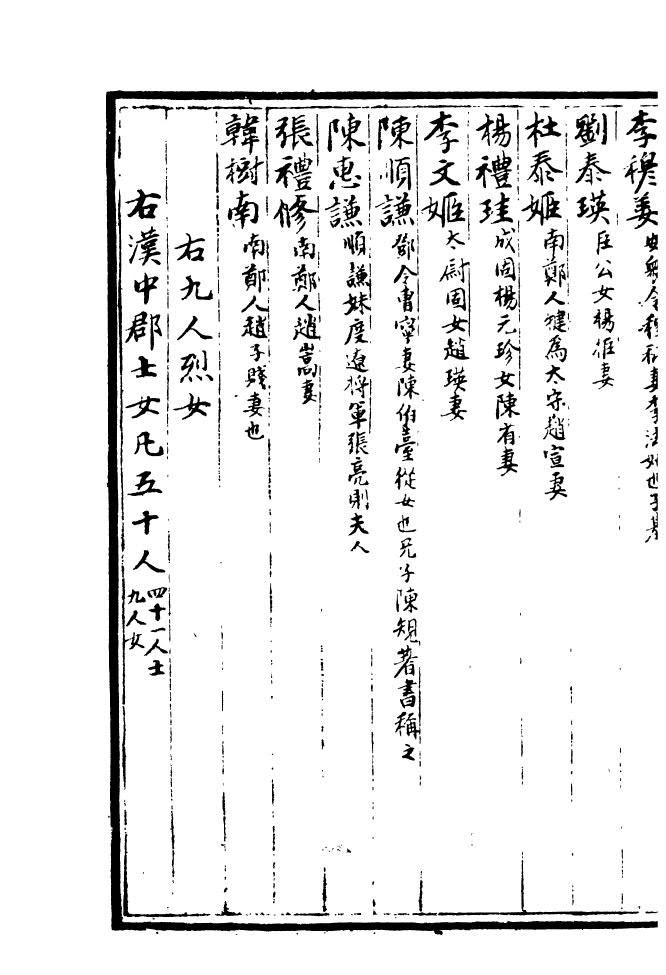 李穆姜安衆令程祗妻李法姊也子基
劉泰瑛巨公女楊拒妻
杜泰姬南鄭人犍爲太守趙宣妻
楊禮珪成固楊元珍女陳省妻
李文姬太尉固女趙瑛妻
陳順謙鄧令曹寧妻陳伯臺從女也兄子陳規著書稱之
陳惠謙順謙妹度遼將軍張亮則夫人
張禮修南鄭人趙嵩妻
韓樹南南鄭人趙子賤妻也
右九人烈女
右漢中郡士女凡五十人四十一人士
九人女